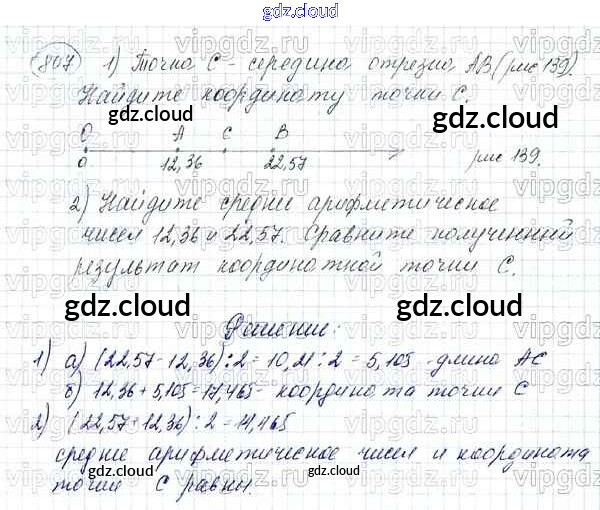 gdz.cloud
807 1) Точка С - середина отрезка АВ (рис 139).
Найдите координату точки С.
gdz.cloud
О А С В
0 12,36 22,57 рис 139.
2) Найдите среднее арифметическое
чисел 12,36 и 22,57. Сравните полученный
результат координатной точки С.
gdz.cloud gdz.cloud
Решение:
1) а) (22,57-12,36):2=10,21:2=5,105 - длина АС
б) 12,36+5,105=17,465- координата точки С
2) (22,57+12,36):2=17,465
среднее арифметическое чисел и координата
gdz.cloud gdz.cloud
точки С равны.
gdz.cloud